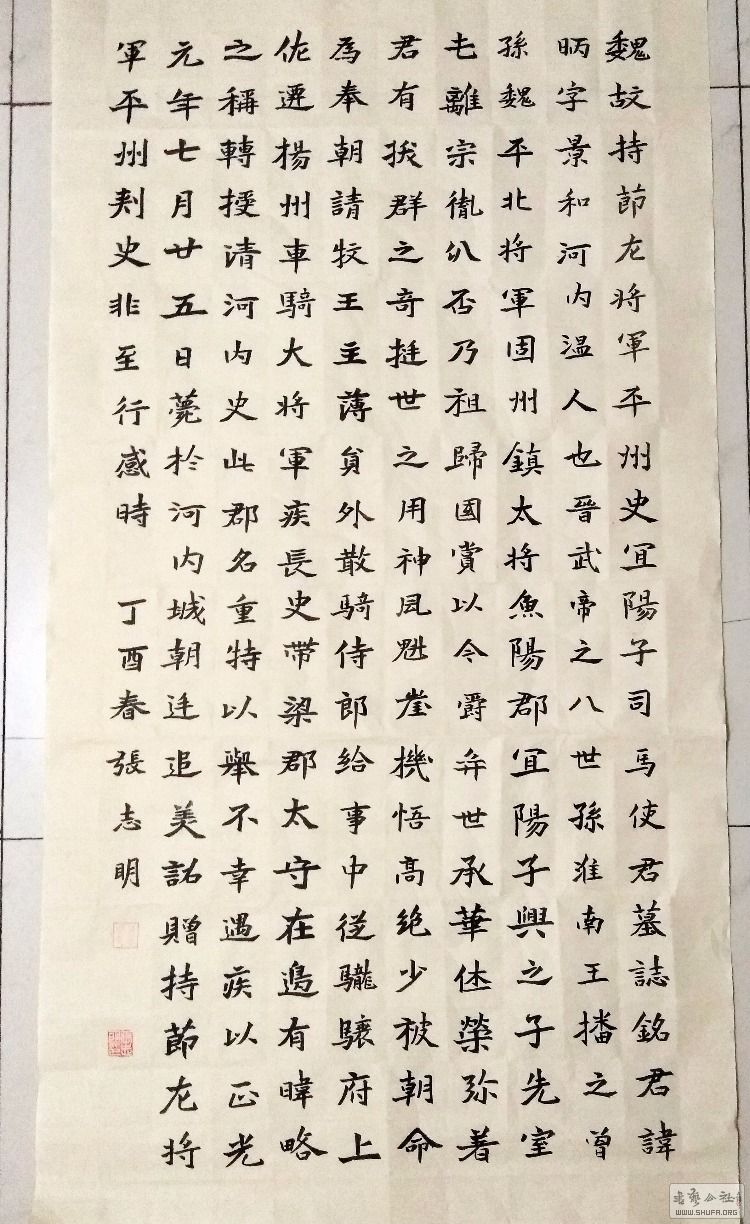 魏故持節左將軍平州史宜陽子司馬使君墓誌銘君諱
昞字景和河內温人也晉武帝之八世孫淮南王播之曾
孫魏平北將軍固州鎮大將魚陽郡宜陽子興之子先室
屯離宗胤分否乃祖歸國賞以今爵弈世承華休榮弥著
君有拔群之奇挺世之用神風魁崖機悟高絶少被朝命
為奉朝請牧王主薄員外散騎侍郎給事中從驤驤府上
佐遷楊州車騎大將軍疾長史帶梁郡太守在邊有暐略
之稱轉授清河內史此郡名重特以舉不幸遇疾以正光
元年七月廿五日薨於河內城朝廷追美詔贈持節左將
軍平州刺史非至行感時 丁酉春張志明
WWW.SHUFA.ORG